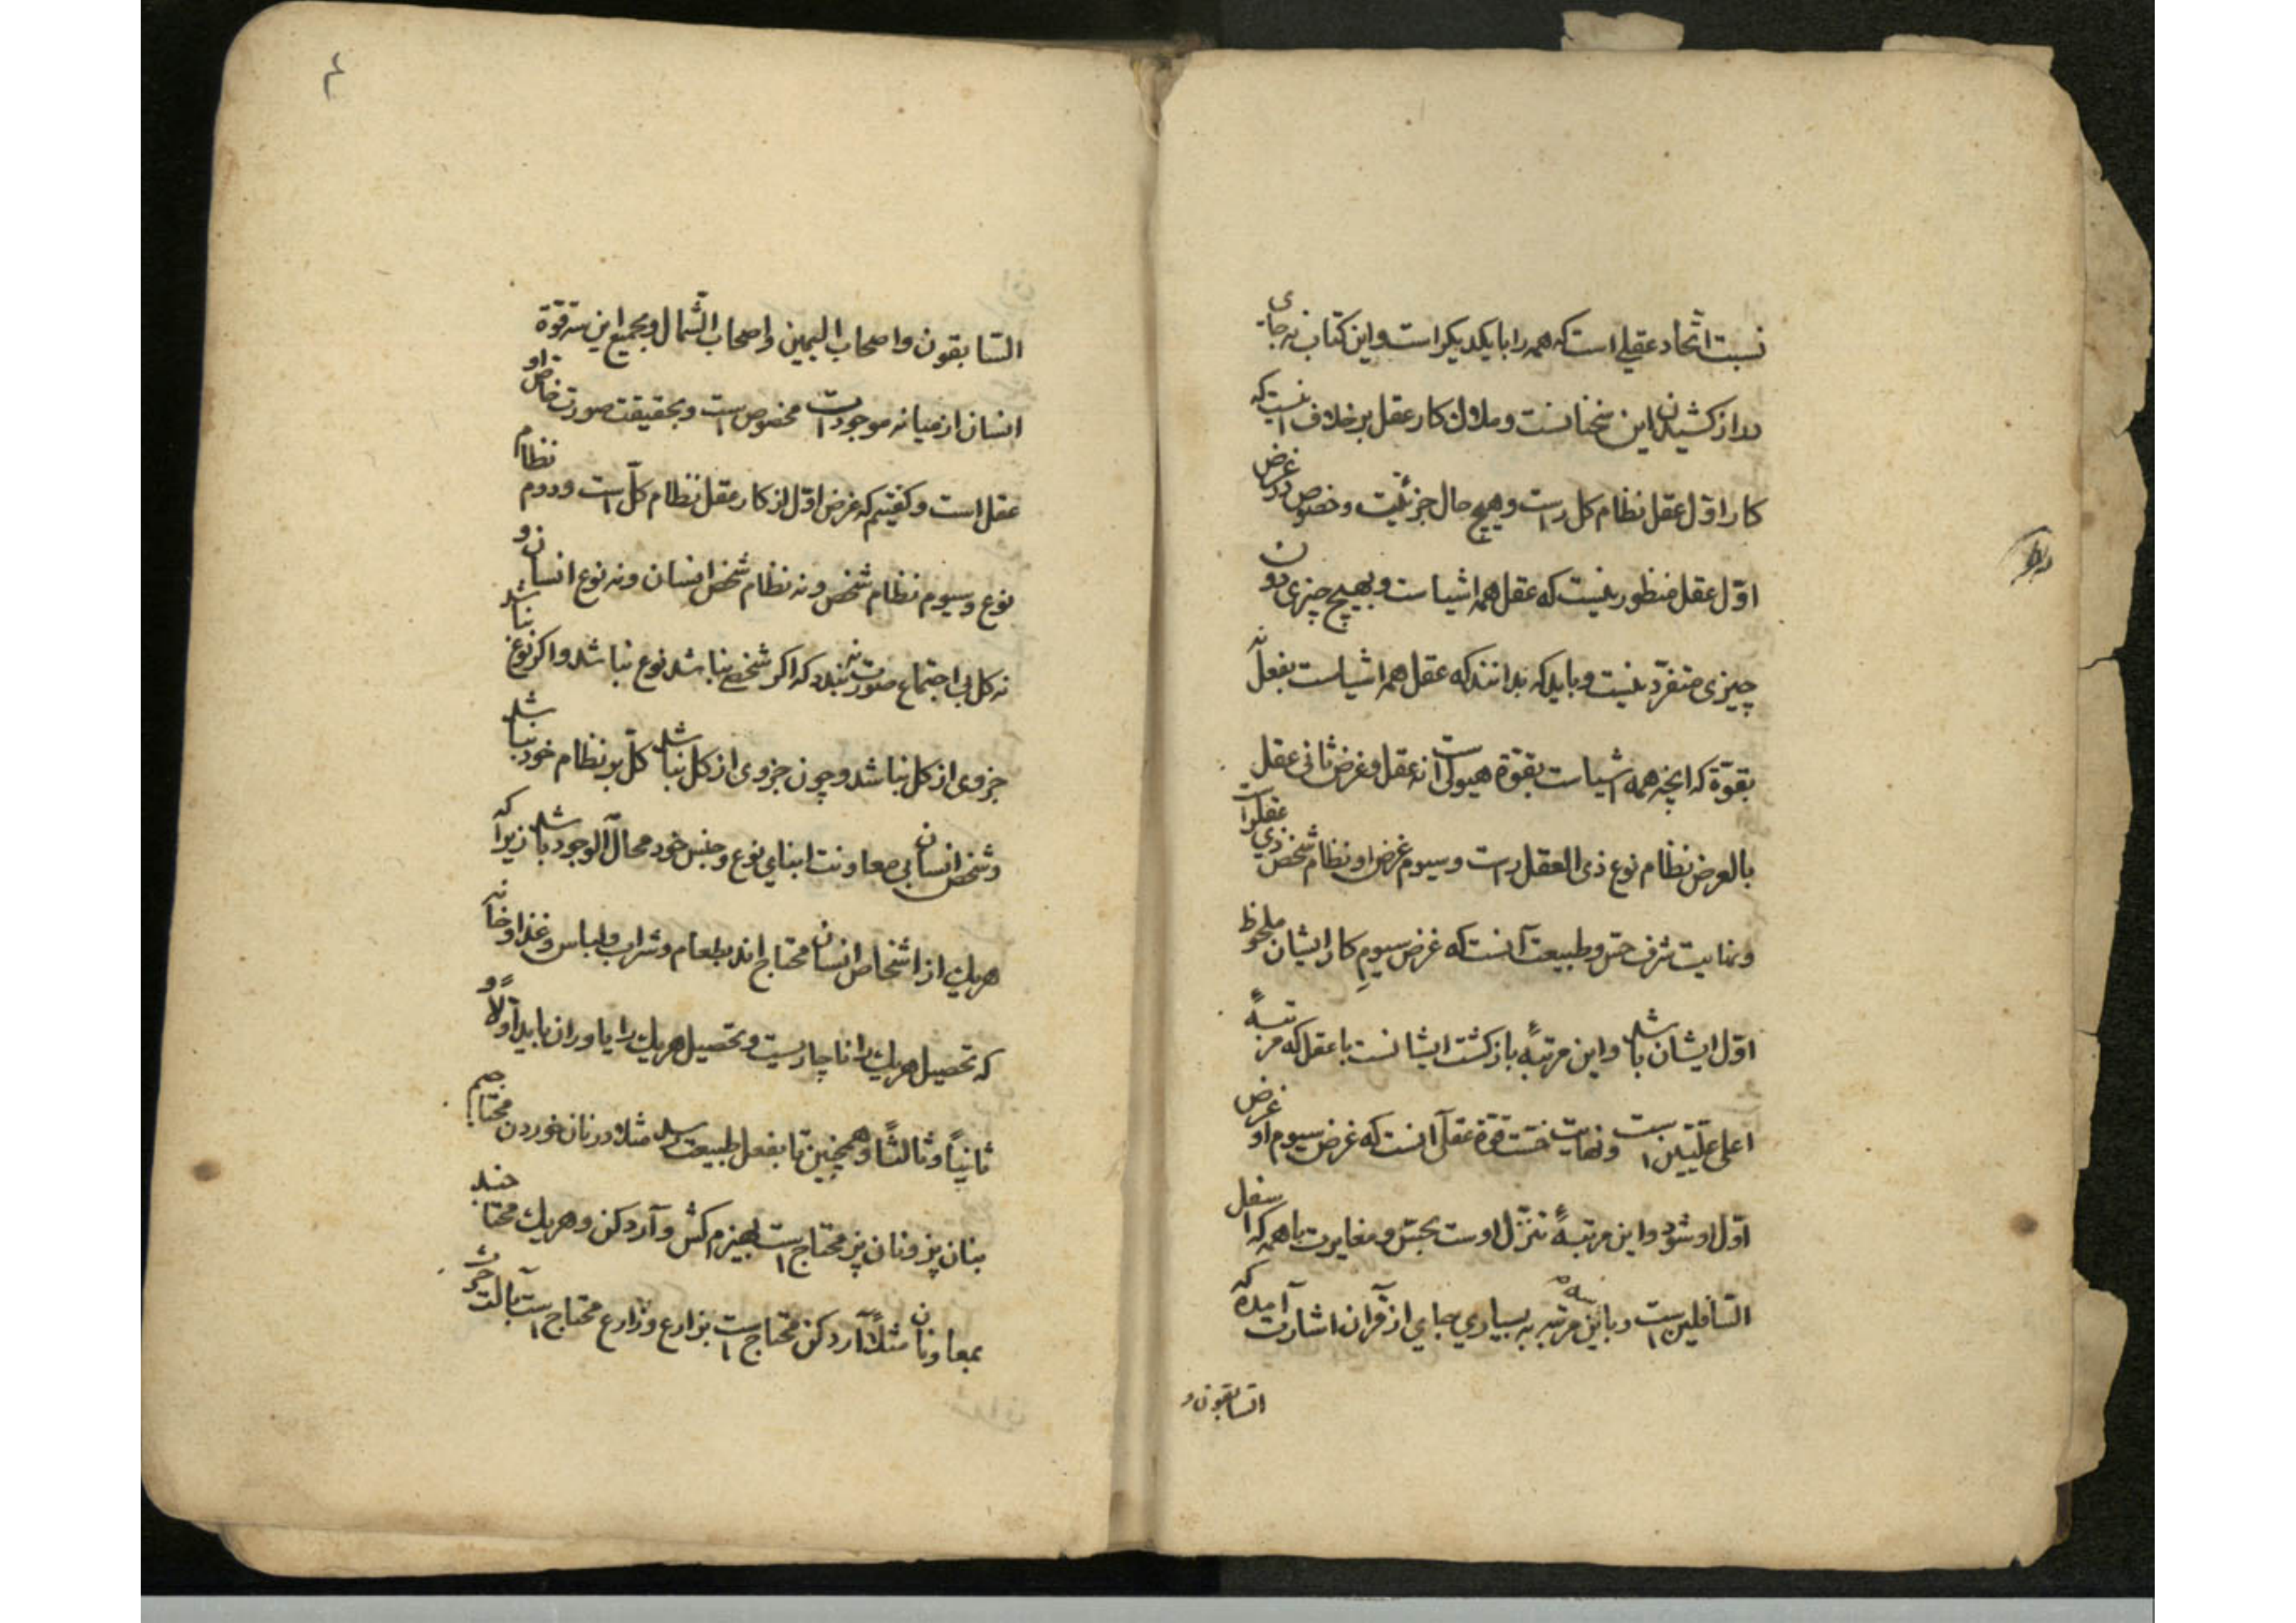 نسبت اتّحاد عقلی است که همه را با یکدیکر است و این کتاب نه جای
دراز کشیدن این سخنانست و ملاک کار عقل بر خلاف اینست که
کار اوّل عقل نظام کل است و هیچ حال جزئیت و خصوص در غرض
اوّل عقل منظور نیست که عقل همه اشیاست و بهیچ چیزی دون
چیزی متفرّد نیست و باید که بدانند که عقل همه اشیاست بفعل نه
بقوّة که انچه همه اشیاست بقوّة هیولی است نه عقل و غرض ثانی عقل
بالعرض نظام نوع ذی العقل است و سیوم غرض او نظام شخص ذی عقل است
و نهایت شرف حسّ و طبیعت آنست که غرض سیوم کار ایشان ملحوظ
اوّل ایشان باشد و این مرتبهٔ بازکشت ایشانست با عقل که مرتبهٔ
اعلی علّیّین است و نهایت خسّت قوّة عقل آنست که غرض سیوم او غرض
اوّل او شود و این مرتبهٔ تنزّل اوست بحسّ و مغایرت با همه که اسفل
السّافلین است و باین سه مرتبه به بسیاری جای از قرآن اشارت آمده که
السّابقون و
۴
السّابقون و اصحاب الیمین و اصحاب الشّمال و بجمیع این سه قوّة
انسان از میانه موجودات مخصوص است و بحقیقت صورت خاصّ او
عقل است و کفتیم که غرض اوّل از کار عقل نظام کلّ است و دوم نظام
نوع و سیوم نظام شخص و نه نظام شخص انسان و نه نوع انسان و
نه کل بی اجتماع صورت نبندد که اکر شخصی نباشد نوع نباشد و اکر نوع نباشد
جزوی از کل نباشد و چون جزوی از کل نباشد کلّ بر نظام خود نباشد
و شخص انسان بی معاونت ابنای نوع و جنس خود محال الوجود باشد زیرا که
هریک از اشخاص انسان محتاج اند بطعام و شراب و لباس و غذا و خانه
که تحصیل هریک را ناچاریست و تحصیل هریک را یاوران باید اوّلاً و
ثانیاً و ثالثاً و همچنین تا بفعل طبیعت رسد مثلا در نان خوردن محتاجیم
بنان پز و نان پز محتاج است بهیزم کش و آرد کن و هریک محتاجند
بمعاونان مثلاً آرد کن محتاج است بزارع و زارع محتاج است بآلت حرث